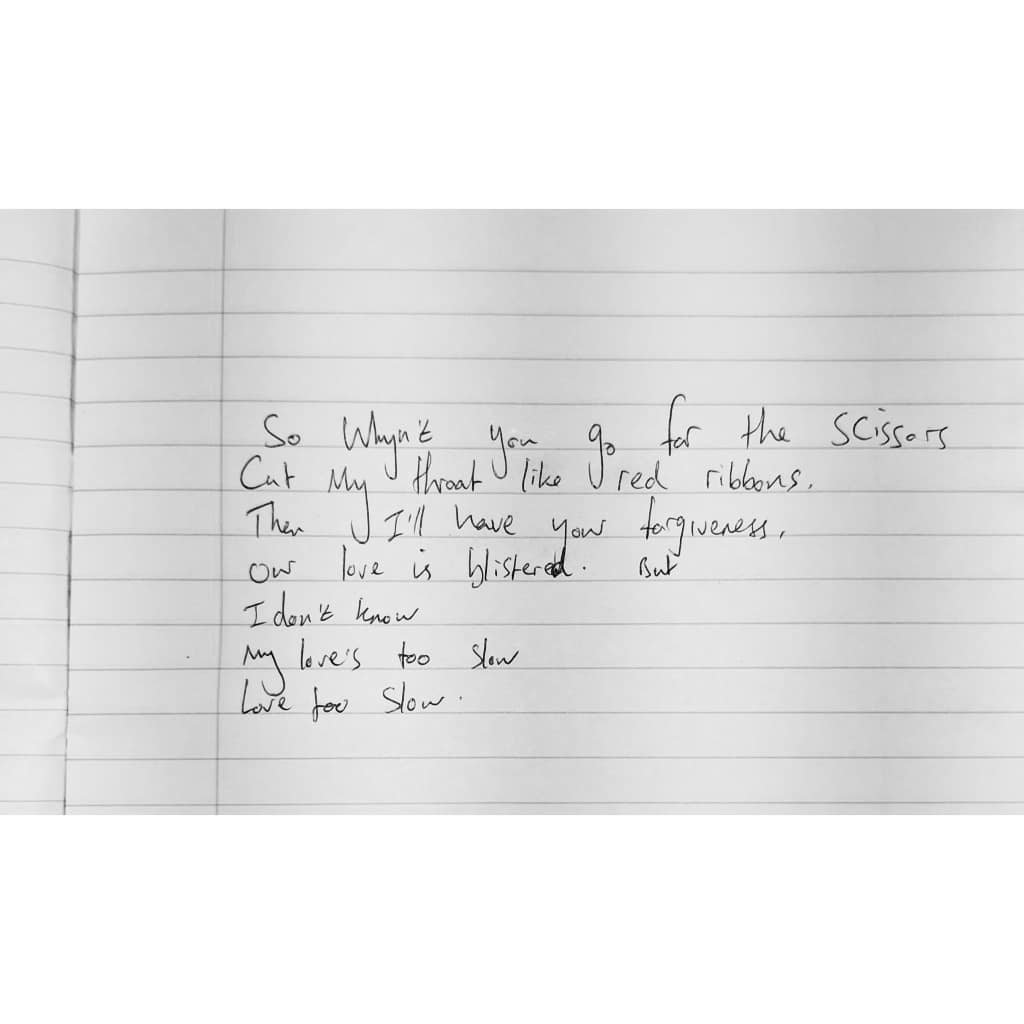 So Whyn't you go for the scissors
Cut My throat like red ribbons.
Then I'll have your forgiveness.
Our love is blistered. But
I don't know
My love's too slow
Love too slow.